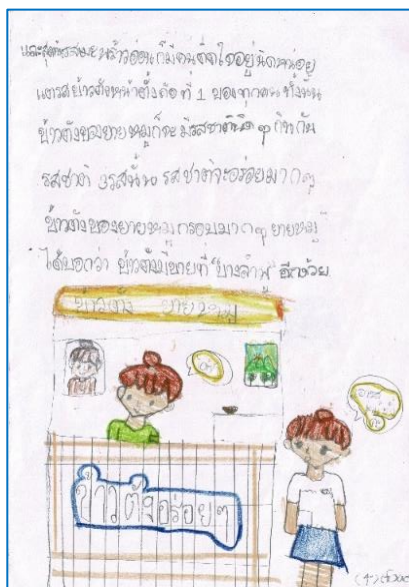 และสูตรผสมมะพร้าวอ่อนก็มีคนติดใจอยู่นิดหน่อย
แต่รสข้าวตังหน้าตั้งคือที่ 1 ของทุกคน ทั้งนั้น
ข้าวตังของยายหมูก็จะ มีรสชาติ ๆ กัน
รสชาติ 3 รสนั้น รสชาติจะอร่อยมาก ๆ
ข้าวตังของยายหมูกรอบมาก ๆ ยายหมู
ได้บอกว่า ข้าวตังมีขายที่ "บางลำพู" อีกด้วย
ข้าวตัง ยายหมู
ข้าวตังอร่อยๆ